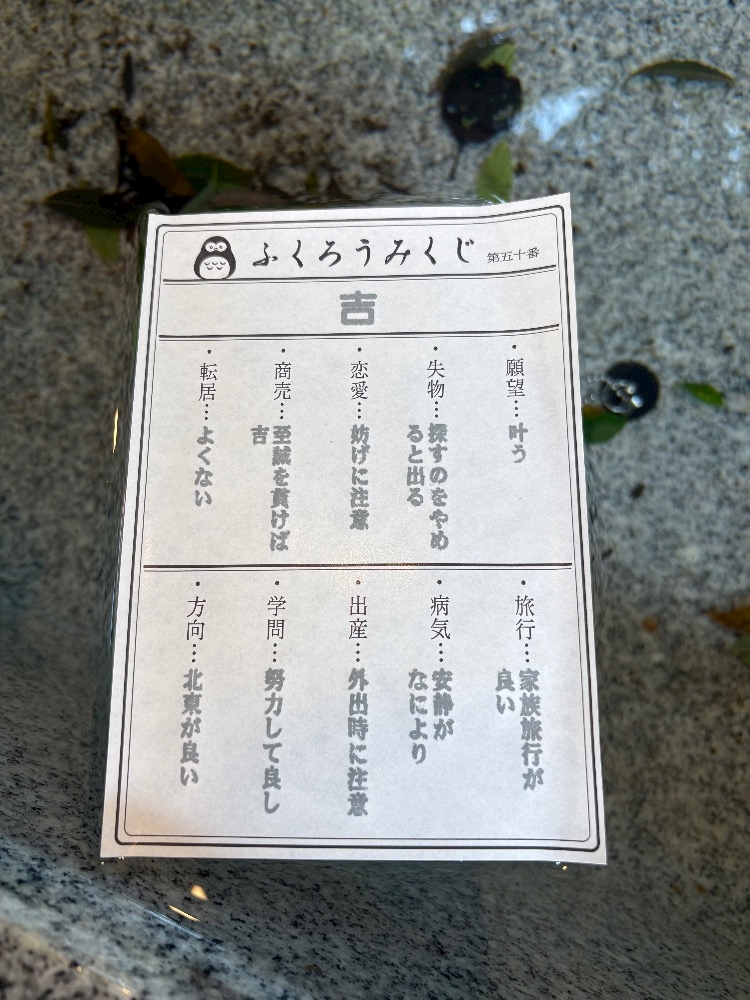 ふくろうみくじ 第五十番
吉
・願望…叶う
・失物…探すのをやめ
ると出る
・恋愛…妨げに注意
・商売…至誠を貫けば
吉
・転居…よくない
・旅行…家族旅行が
良い
・病気…安静が
なにより
・出産…外出時に注意
・学問…努力して良し
・方向…北東が良い